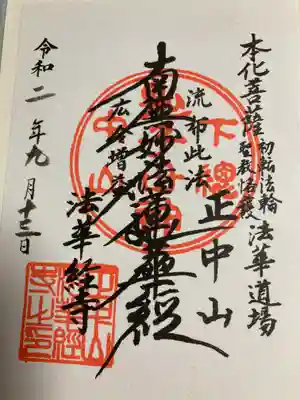 本化菩薩初転法輪
聖教格護法華道場
正中山
流布此法
南無妙法蓮華経
広令増益
法華経寺
令和二年九月十三日